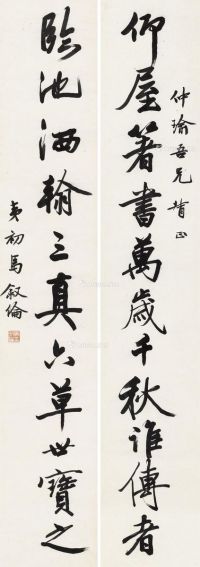 仰屋著書萬歲千秋誰傳者
仲瑜吾兄背正
臨池洒翰三真六草世寶之
夷初馬叙倫